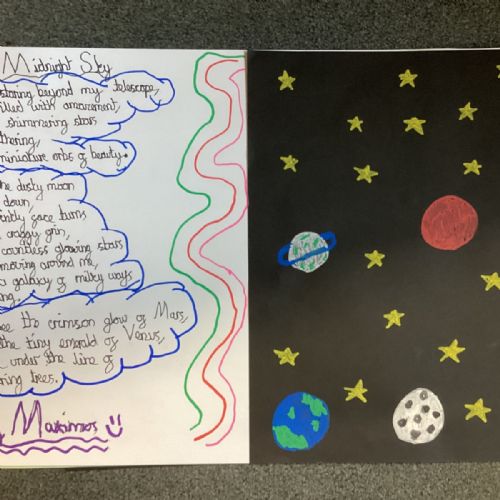 Midnight Sky
staring beyond my telescope,
filled with amazement,
shimmering stars
miniature orbs of beauty.
the dusty moon
down,
face turns
craggy grin,
countless glowing stars
around me,
a galaxy of milky ways
see the crimson glow of Mars,
the tiny emerald of Venus,
under the line of
trees.
Maximos